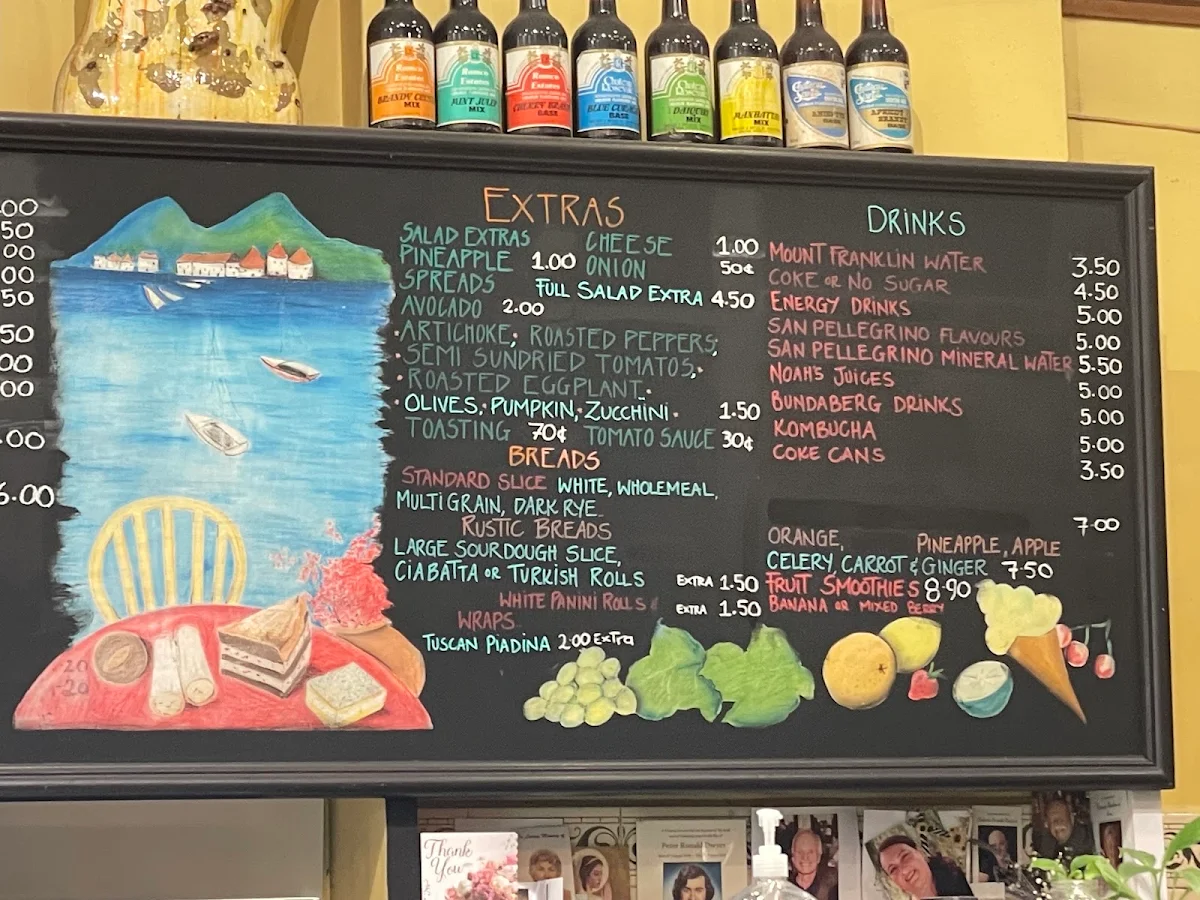 Ramco Estates
BRANDY
MIX
MINT JULEP
MIX
Ramco Estates
BASE
BLUE
BASE
DAIQUIRI
MIX
MANHATTAN
MIX
APRICOT BRANDY
00
50
00
00
50
50
00
00
.00
6.00
EXTRAS
SALAD EXTRAS CHEESE 1.00
PINEAPPLE 1.00 ONION 50¢
SPREADS FULL SALAD EXTRA 4.50
AVOCADO 2.00
·ARTICHOKE; ROASTED PEPPERS;
·SEMI SUNDRIED TOMATOS,·
·ROASTED EGGPLANT·
·OLIVES,·PUMPKIN,·ZUCCHINI· 1.50
TOASTING 70¢ TOMATO SAUCE 30¢
BREADS
STANDARD SLICE WHITE, WHOLEMEAL,
MULTIGRAIN, DARK RYE
RUSTIC BREADS
LARGE SOURDOUGH SLICE,
CIABATTA OR TURKISH ROLLS EXTRA 1.50
WHITE PANINI ROLLS EXTRA 1.50
WRAPS
TUSCAN PIADINA 2.00 EXTRA
DRINKS
MOUNT FRANKLIN WATER 3.50
COKE OR NO SUGAR 4.50
ENERGY DRINKS 5.00
SAN PELLEGRINO FLAVOURS 5.00
SAN PELLEGRINO MINERAL WATER 5.50
NOAH'S JUICES 5.00
BUNDABERG DRINKS 5.00
KOMBUCHA 5.00
COKE CANS 3.50
7.00
ORANGE, PINEAPPLE, APPLE
CELERY, CARROT & GINGER 7.50
FRUIT SMOOTHIES 8.90
BANANA OR MIXED BERRY
-20
-20
Thank
You
Peter Ronald Dwyer